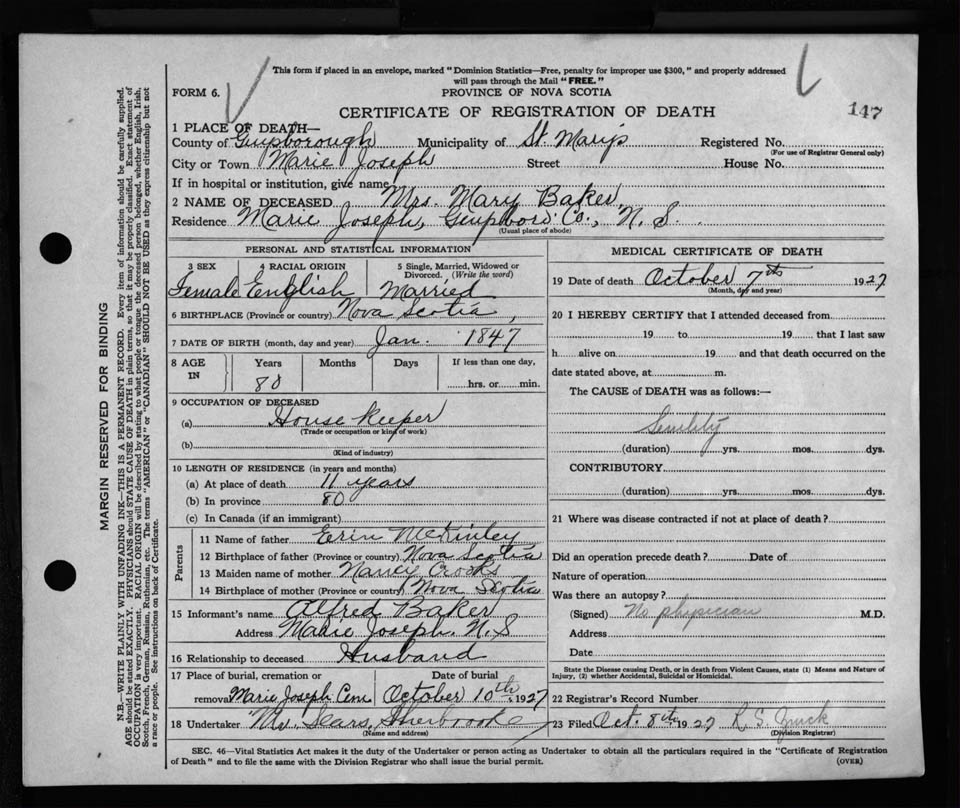 This form if placed in an envelope, marked "Dominion Statistics—Free, penalty for improper use $300," and properly addressed
will pass through the Mail "FREE."
FORM 6.
PROVINCE OF NOVA SCOTIA
CERTIFICATE OF REGISTRATION OF DEATH
147
1 PLACE OF DEATH—
County of Guysborough Municipality of St. Mary's Registered No.
(For use of Registrar General only)
City or Town Marie Joseph Street House No.
If in hospital or institution, give name
2 NAME OF DECEASED Mrs. Mary Baker
Residence Marie Joseph, Co., N. S.
(Usual place of abode)
PERSONAL AND STATISTICAL INFORMATION
3 SEX 4 RACIAL ORIGIN 5 Single, Married, Widowed or Divorced. (Write the word)
Female English Married
6 BIRTHPLACE (Province or country) Nova Scotia,
7 DATE OF BIRTH (month, day and year) Jan. 1847
8 AGE IN Years Months Days If less than one day,
80 hrs. or min.
9 OCCUPATION OF DECEASED
(a) House keeper
(Trade or occupation or kind of work)
(b)
(Kind of industry)
10 LENGTH OF RESIDENCE (in years and months)
(a) At place of death 11 years
(b) In province 80
(c) In Canada (if an immigrant)
Parents
11 Name of father McKinley
12 Birthplace of father (Province or country) Nova Scotia
13 Maiden name of mother Nancy Crooks
14 Birthplace of mother (Province or country) Nova Scotia
15 Informant's name Alfred Baker
Address Marie Joseph. N. S
16 Relationship to deceased Husband
17 Place of burial, cremation or removal Date of burial
Marie Joseph Cem October 10th 1927
18 Undertaker Sears, Sherbrooke
(Name and address)
MEDICAL CERTIFICATE OF DEATH
19 Date of death October 7th 1927
(Month, day and year)
20 I HEREBY CERTIFY that I attended deceased from
19 to 19 that I last saw
h alive on 19 and that death occurred on the
date stated above, at m.
The CAUSE of DEATH was as follows:—
Senility
(duration) yrs. mos. dys.
CONTRIBUTORY
(duration) yrs. mos. dys.
21 Where was disease contracted if not at place of death?
Did an operation precede death? Date of
Nature of operation
Was there an autopsy?
(Signed) No physician M.D.
Address
Date
State the Disease causing Death, or in death from Violent Causes, state (1) Means and Nature of
Injury, (2) whether Accidental, Suicidal or Homicidal.
22 Registrar's Record Number
23 Filed Oct. 8th 1927 R. S.
(Division Registrar)
SEC. 46—Vital Statistics Act makes it the duty of the Undertaker or person acting as Undertaker to obtain all the particulars required in the "Certificate of Registration
of Death" and to file the same with the Division Registrar who shall issue the burial permit.
(OVER)
MARGIN RESERVED FOR BINDING
N.B.—WRITE PLAINLY WITH UNFADING INK—THIS IS A PERMANENT RECORD. Every item of information should be carefully supplied.
AGE should be stated EXACTLY. PHYSICIANS should STATE CAUSE OF DEATH in plain terms, so that it may be properly classified. Exact statement of
OCCUPATION is very important. RACIAL ORIGIN will be described by stating to what people or tongue the deceased person belonged, whether English, Irish,
Scotch, French, German, Russian, Ruthenian, etc. The terms "AMERICAN" or "CANADIAN" SHOULD NOT BE USED as they express citizenship but not
a race or people. See instructions on back of Certificate.